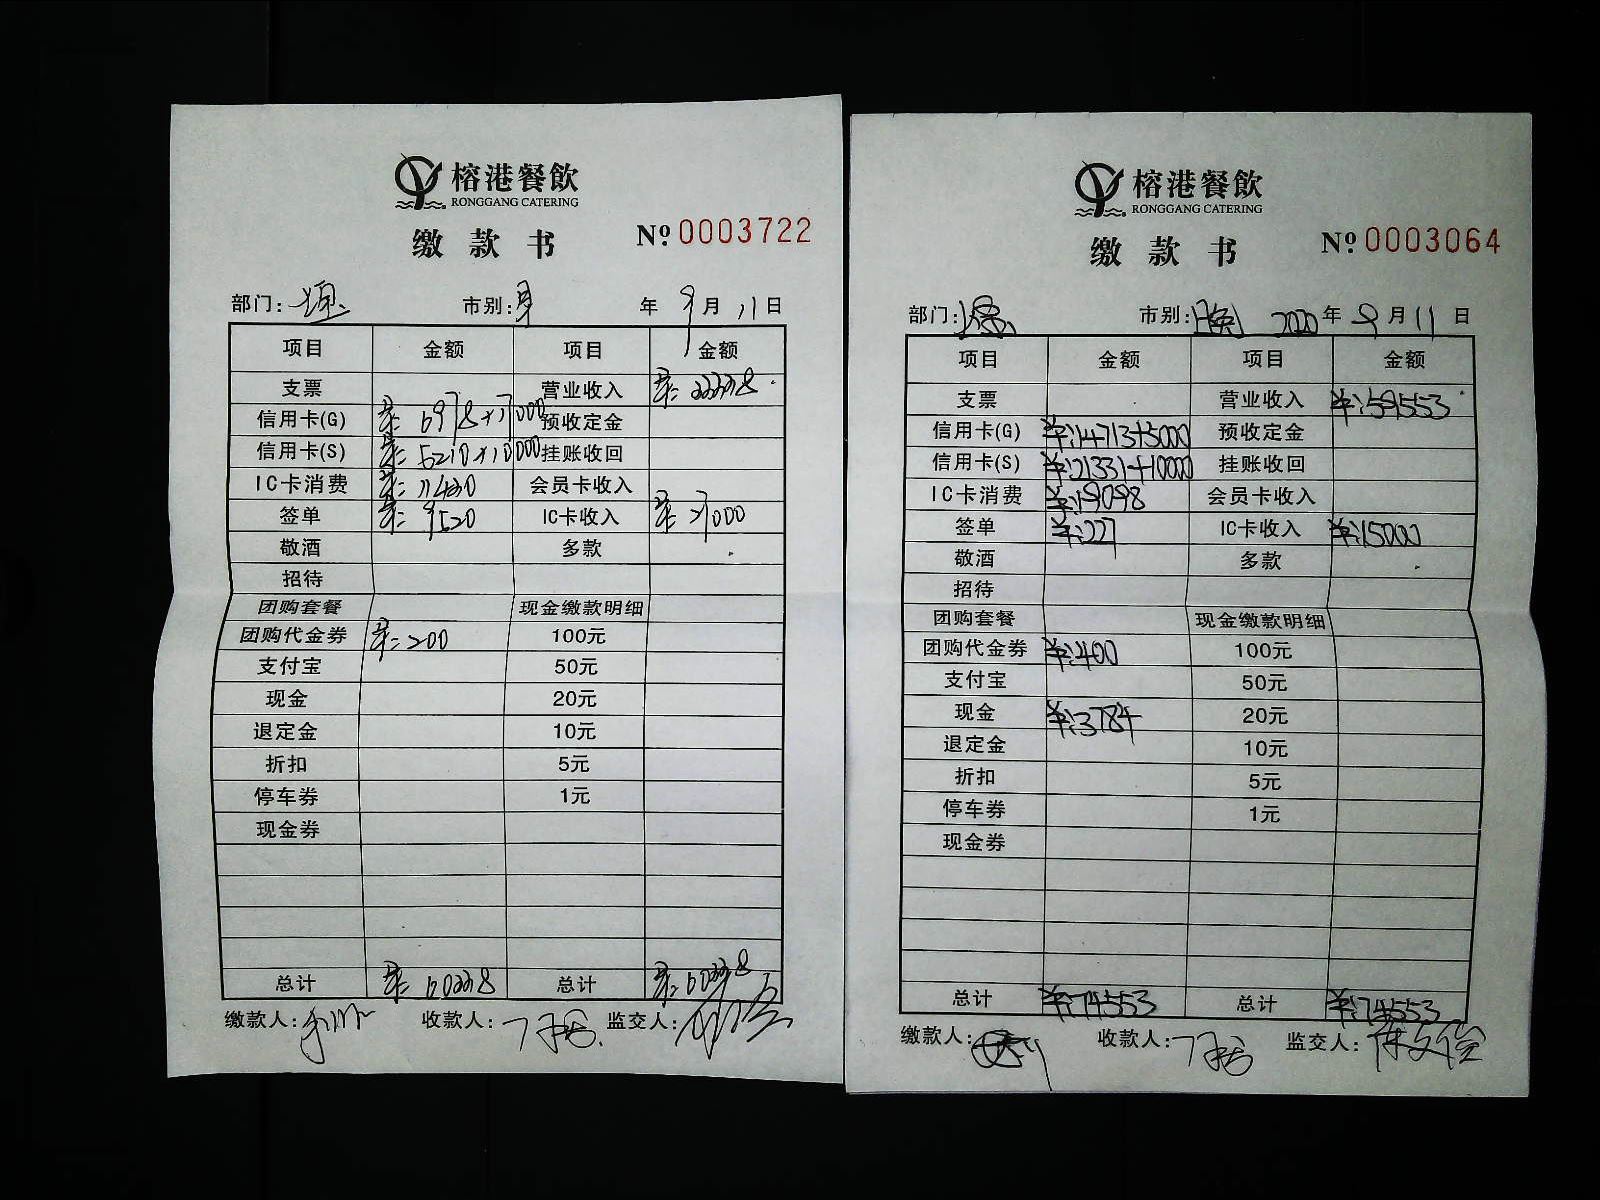 榕港餐飲
RONGGANG CATERING
缴款书
№ 0003722
部门: 市别: 年 9月 11日
项目 金额 项目 金额
支票 营业收入 ¥:33338
信用卡(G) ¥:6978+17000 预收定金
信用卡(S) ¥:5210+10000 挂账收回
IC卡消费 ¥:11430 会员卡收入
签单 ¥:9520 IC卡收入 ¥:27000
敬酒 多款
招待
团购套餐 现金缴款明细
团购代金券 ¥:200 100元
支付宝 50元
现金 20元
退定金 10元
折扣 5元
停车券 1元
现金券
总计 ¥:60338 总计 ¥:60338
缴款人: 收款人: 监交人:
榕港餐飲
RONGGANG CATERING
缴款书
№ 0003064
部门: 市别: 2020年 9月 11日
项目 金额 项目 金额
支票 营业收入 ¥:59553
信用卡(G) ¥:14713+5000 预收定金
信用卡(S) ¥:21331+10000 挂账收回
IC卡消费 ¥:19098 会员卡收入
签单 ¥:227 IC卡收入 ¥:15000
敬酒 多款
招待
团购套餐 现金缴款明细
团购代金券 ¥:400 100元
支付宝 50元
现金 ¥:3784 20元
退定金 10元
折扣 5元
停车券 1元
现金券
总计 ¥:74553 总计 ¥:74553
缴款人: 收款人: 监交人: